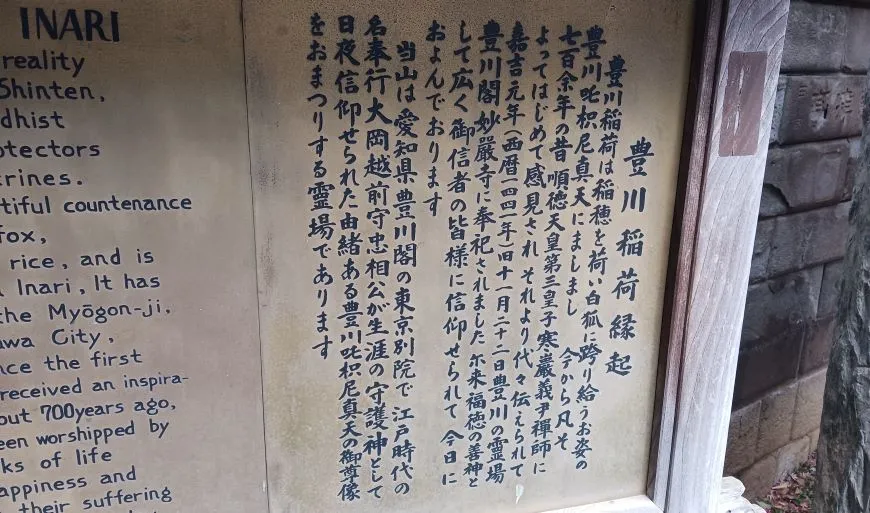 豊川稲荷縁起
豊川稲荷は稲穂を荷い白狐に跨り給うお姿の
豊川吒枳尼真天にましまし 今から凡そ
七百余年の昔 順徳天皇第三皇子寒巖義尹禅師に
よってはじめて感見され それより代々伝えられて
嘉吉元年(西暦一四四一年)旧十一月二十二日豊川の霊場
豊川閣妙嚴寺に奉祀されました 尓来福徳の善神と
して広く御信者の皆様に信仰せられて 今日に
およんでおります
当山は愛知県豊川閣の東京別院で 江戸時代の
名奉行大岡越前守忠相公が生涯の守護神として
日夜信仰せられた由緒ある豊川吒枳尼真天の御尊像
をおまつりする霊場であります
INARI
reality
Shinten,
ddhist
otectors
trines.
tiful countenance
fox,
rice, and is
Inari, It has
the Myōgon-ji,
wa City,
nce the first
received an inspira-
out 700years ago,
een worshipped by
ks of life
appiness and
their suffering